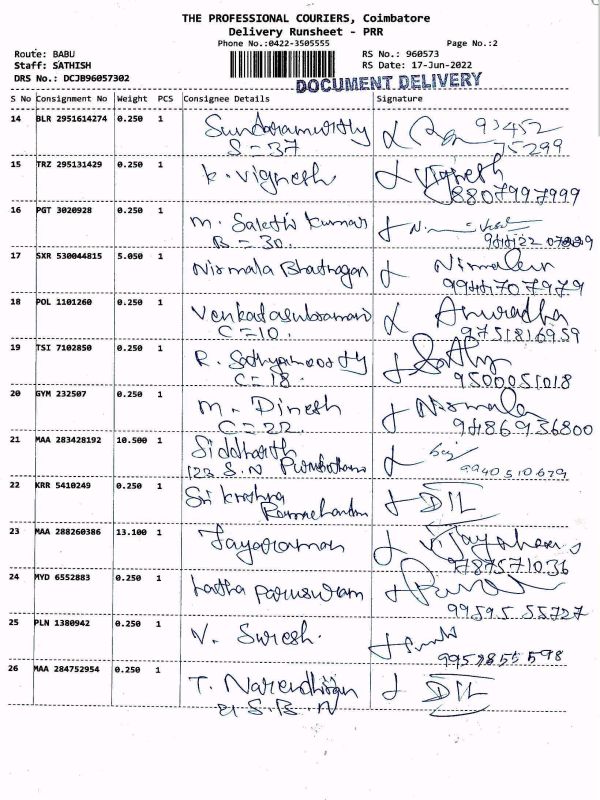 THE PROFESSIONAL COURIERS, Coimbatore
Delivery Runsheet - PRR
Phone No.:0422-3505555 Page No.:2
Route: BABU RS No.: 960573
Staff: SATHISH RS Date: 17-Jun-2022
DRS No.: DCJB96057302 DOCUMENT DELIVERY
S No Consignment No Weight PCS Consignee Details Signature
14 BLR 2951614274 0.250 1 Sundaramurthy 93452
S = 37 75299
15 TRZ 295131429 0.250 1 K. Vignesh Vignesh
8807997999
16 PGT 3020928 0.250 1 M. Sakthi Kumar
B = 30.
17 SXR 530044815 5.050 1 Nirmala Bhatnagar
9944707979
18 POL 1101260 0.250 1 Venkatasubramani Anuradha
C = 10. 9751816959
19 TSI 7102850 0.250 1 R. Sathyamoorthy
C = 18. 9500051018
20 GYM 232507 0.250 1 M. Dinesh Nirmala
C = 22. 9486936800
21 MAA 283428192 10.500 1 Siddharth
123 S.N 9940510679
22 KRR 5410249 0.250 1 Sri Krishna DIL
Ramachandran
23 MAA 288260386 13.100 1 Jayaraman
9787571036
24 MYD 6552883 0.250 1 Latha Parusuram
99595 55727
25 PLN 1380942 0.250 1 V. Suresh.
26 MAA 284752954 0.250 1 T. DIL
21 S.B.N